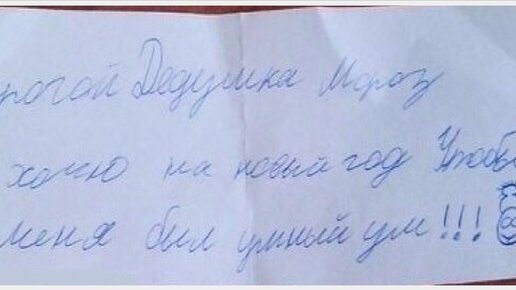 рогой Дедушка Мороз
хочю на новый год Чтобы
меня был умный ум!!!